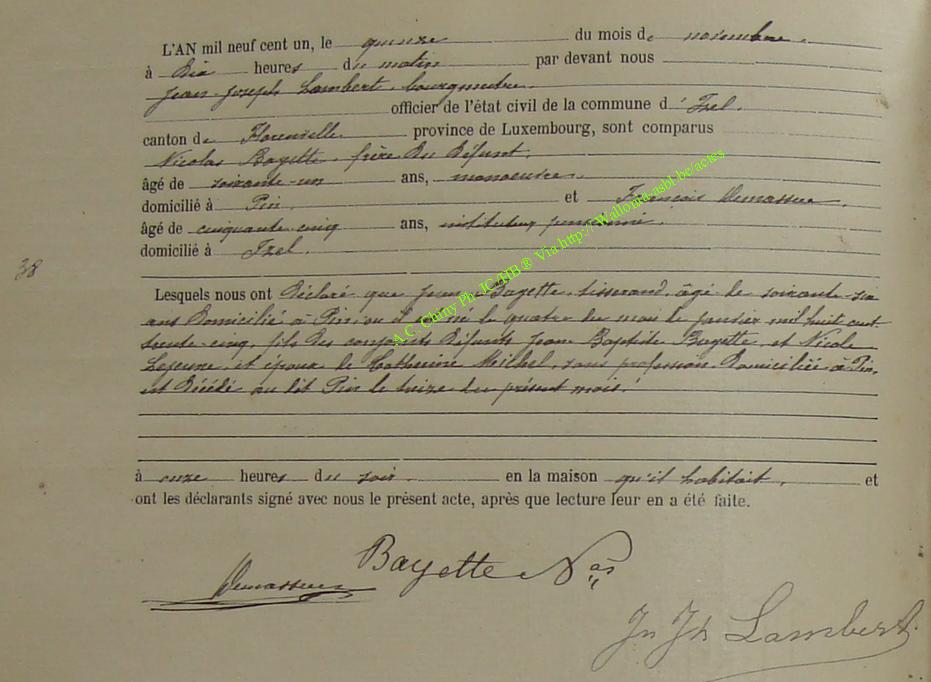 L'AN mil neuf cent un, le quinze du mois de novembre.
à dix heures du matin par devant nous
Jean-Joseph Lambert, bourgmestre
officier de l'état civil de la commune d'Izel.
canton de Florenville province de Luxembourg, sont comparus
Nicolas Bayette, frère du défunt,
âgé de soixante-un ans, manoeuvre
domicilié à Pin. et François Demasseu
âgé de cinquante cinq ans, instituteur pensionné.
domicilié à Izel.
38
Lesquels nous ont déclaré que Bayette, tisserand, âgé de soixante-six
ans domicilié à Pin où il est né le quatre du mois de janvier mil huit cent
trente-cinq, fils des conjoints défunts Jean Baptiste Bayette, et Nicole
Lejeune, et époux de Catherine Michel, sans profession domiciliée à Pin,
est décédé au dit Pin le treize du présent mois.
à onze heures du soir. en la maison qu'il habitait, et
ont les déclarants signé avec nous le présent acte, après que lecture leur en a été faite.
Bayette Nas
Demasseu
Jn Jh Lambert
A.C. Chiny Ph. JC/HB ® Via http://Wallonia-asbl-be/actes